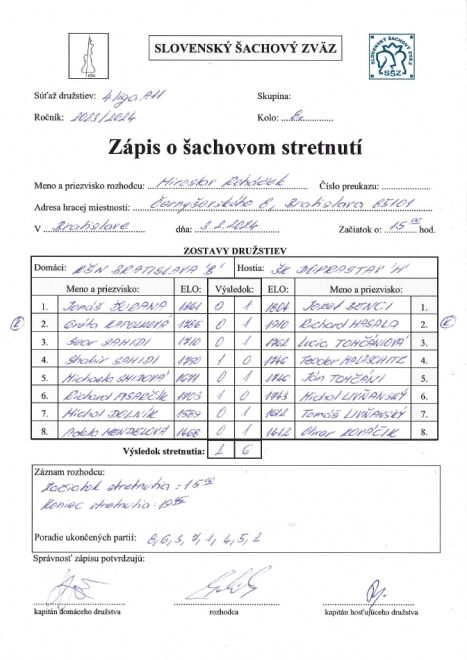 SŠN
SLOVENSKÝ ŠACHOVÝ ZVÄZ
SLOVENSKÝ ŠACHOVÝ ZVÄZ
SŠZ
Súťaž družstiev: 4. liga A11
Skupina:
Ročník: 2023/2024
Kolo: 8.
Zápis o šachovom stretnutí
Meno a priezvisko rozhodcu: Miroslav Roháček Číslo preukazu:
Adresa hracej miestnosti: Černyševského 8, Bratislava 85101
V Bratislave dňa: 3.2.2024 Začiatok o: 15 00 hod.
ZOSTAVY DRUŽSTIEV
Domáci: KŠN BRATISLAVA "B" Hostia: ŠK DOPRASTAV "A"
Meno a priezvisko: ELO: Výsledok: ELO: Meno a priezvisko:
1. Tomáš 1861 0 1 1804 Jozef BENCI 1.
2. Gréta 1786 0 1 1910 Richard HASALA 2.
3. SAHIDI 1710 0 1 1762 Lucia TOMČÁNIOVÁ 3.
4. SAHIDI 1750 1 0 1746 Teodor 4.
5. Michaela 1671 0 1 1746 Ján TOMČÁNI 5.
6. Richard PISARČÍK 1703 1 0 1743 Michal LIVŇANSKÝ 6.
7. Michal DOLNÍK 1589 0 1 1612 Tomáš LIVŇANSKÝ 7.
8. Adela MENDELOVÁ 1468 0 1 1412 Oliver KOVÁČIK 8.
Výsledok stretnutia: 2 6
Záznam rozhodcu:
Začiatok stretnutia: 15 00
Koniec stretnutia: 19 45
Poradie ukončených partií: 8, 6, 3, 7, 1, 4, 5, 2
Správnosť zápisu potvrdzujú:
kapitán domáceho družstva rozhodca kapitán hosťujúceho družstva